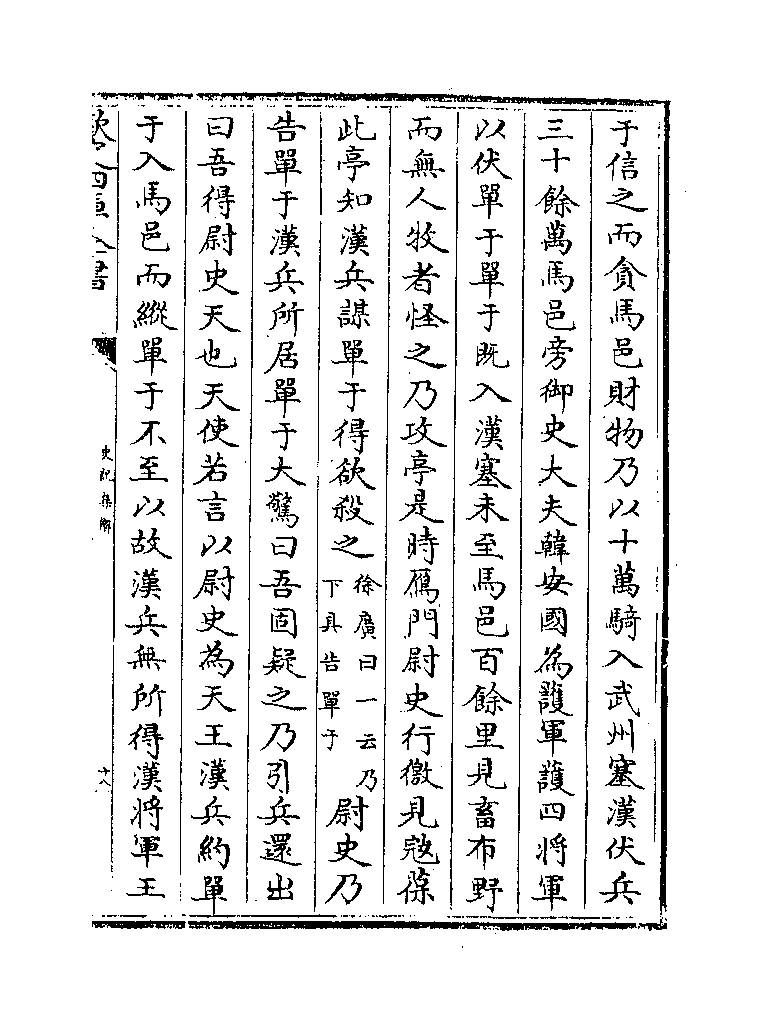 于信之而貪馬邑財物乃以十萬騎入武州塞漢伏兵
三十餘萬馬邑旁御史大夫韓安國為護軍護四將軍
以伏單于單于既入漢塞未至馬邑百餘里見畜布野
而無人牧者怪之乃攻亭是時鴈門尉史行徼見寇葆
此亭知漢兵謀單于得欲殺之徐廣曰一云乃下具告單于尉史乃
告單于漢兵所居單于大驚曰吾固疑之乃引兵還出
曰吾得尉史天也天使若言以尉史為天王漢兵約單
于入馬邑而縱單于不至以故漢兵無所得漢將軍王
欽定四庫全書
史記集解
十八